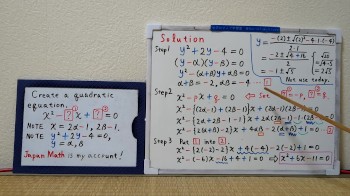 Create a quadratic
equation.
x²-[?]x+[?]=0
NOTE x=2α-1, 2β-1.
NOTE y²+2y-4=0,
y=α,β
Japan Math is my account!
Solution
Step1 y²+2y-4=0
(y-α)(y-β)=0
y²-(α+β)y+αβ=0
α+β=-2, αβ=-4
Not use today.
Step2
x²-px+q=0
x²-{(2α-1)+(2β-1)}x+(2α-1)(2β-1)=0
x²-{2(α+β)-2}x+4αβ-2(α+β)+1=0
Step3 Put ① into ②.
x²-{2(-2)-2}x+4(-4)-2(-2)+1=0
x²-(-6)x-16+4+1=0 x²+6x-11=0